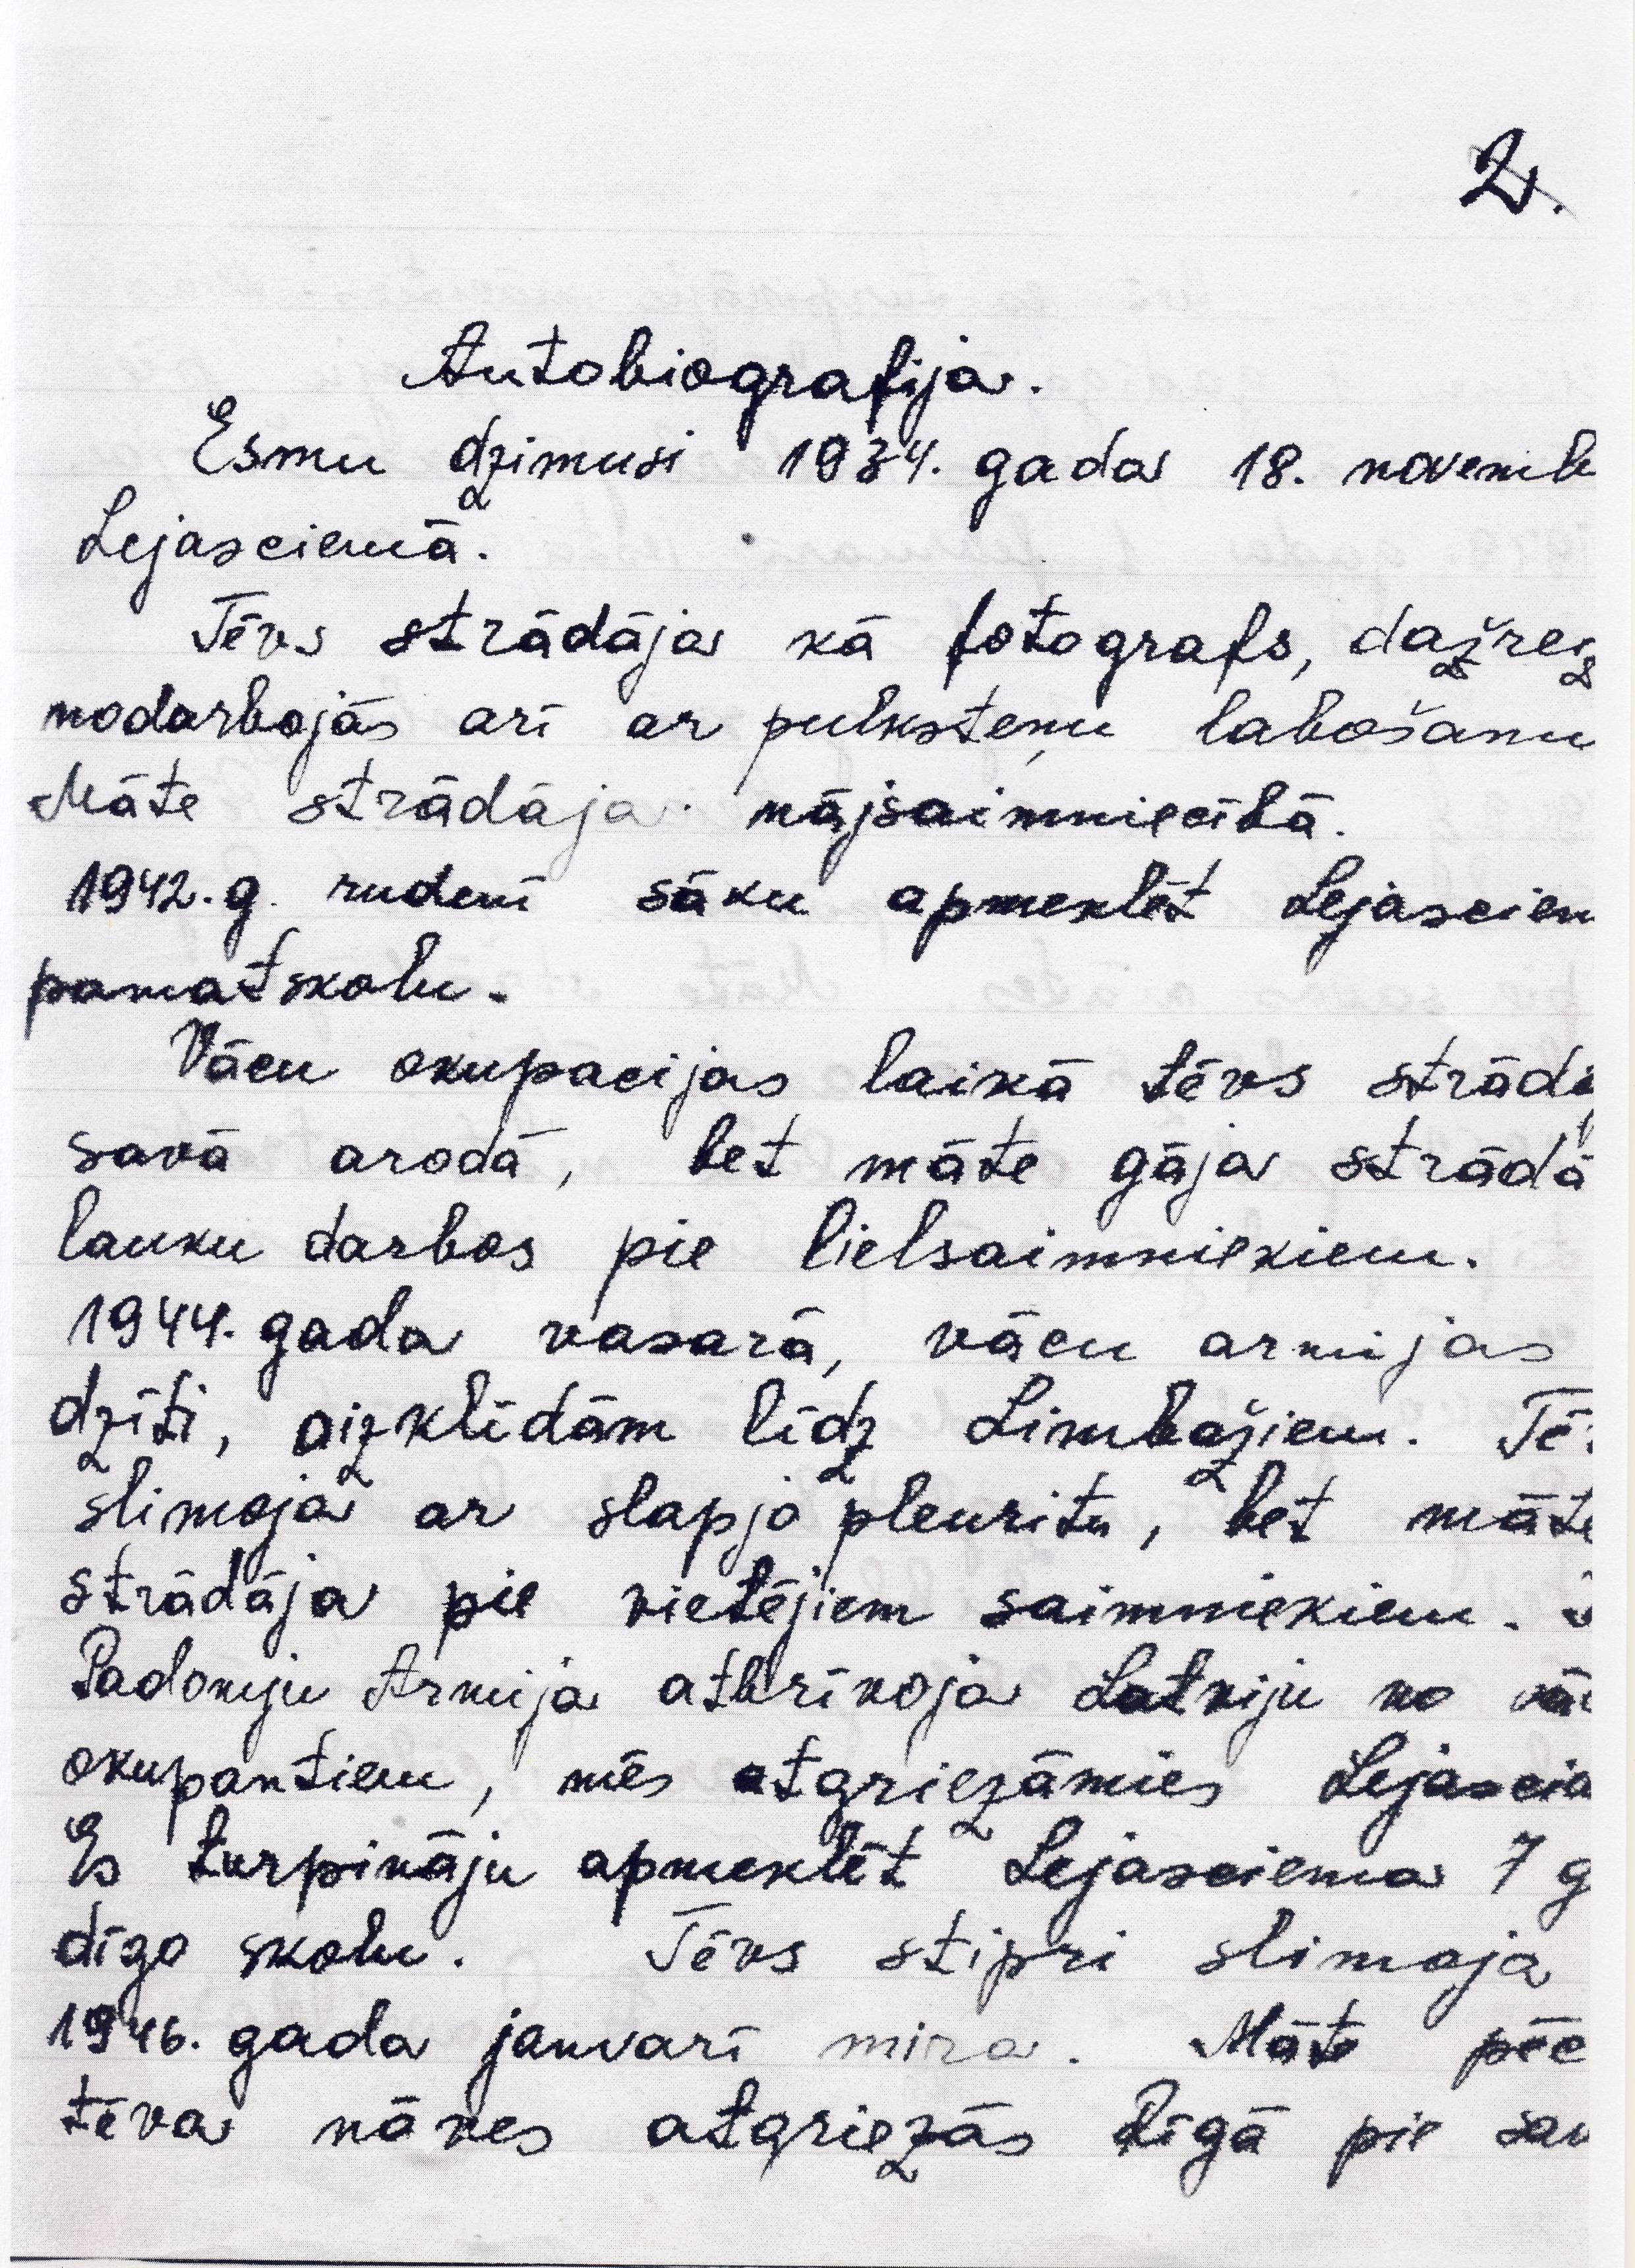 2.
Autobiografija.
Esmu dzimusi 1934. gada 18. novemb
Lejasciemā.
Tēvs strādāja kā fotografs, dažreiz
nodarbojās arī ar pulksteņu labošanu
Māte strādāja mājsaimniecībā.
1942. g. rudenī sāku apmeklēt Lejasciem
pamatskolu.
Vācu okupacijas laikā tēvs strādāj
savā arodā, bet māte gāja strādā
lauku darbos pie lielsaimniekiem.
1944. gada vasarā, vācu armijas
dzīti, aizklīdām līdz Limbažiem. Tēv
slimoja ar slapjo pleuritu, bet māte
strādāja pie vietējiem saimniekiem.
Padomju Armija atbrīvoja Latviju no vāc
okupantiem, mēs atgriezāmies Lejascie
Es turpināju apmeklēt Lejasciema 7 g
dīgo skolu. Tēvs stipri slimoja
1946. gada janvarī mira. Māte pēc
tēva nāves atgriezās Rīgā pie sav